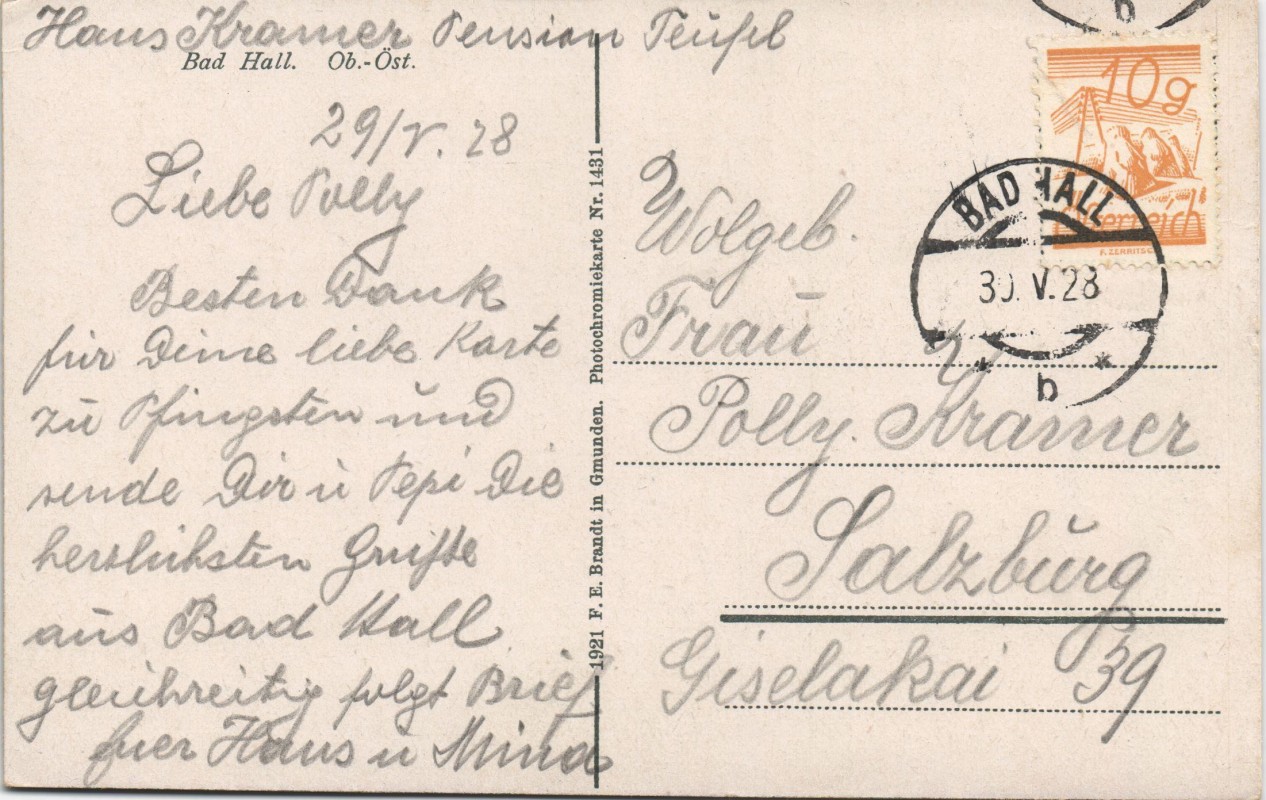 Hans Kramer Pension Teufel
Bad Hall. Ob.-Öst.
29/V. 28
Liebe Polly
Besten Dank
für Deine liebe Karte
zu Pfingsten und
sende Dir u Pepi Die
herzlichsten Grüße
aus Bad Hall
gleichzeitig folgt Brief
Euer Hans u Minna
1921 F. E. Brandt in Gmunden. Photochromiekarte Nr. 1431
b
10g
Österreich
BAD HALL
30. V. 28
* b *
Wolgeb.
Frau
Polly Kramer
Salzburg
Giselakai 39